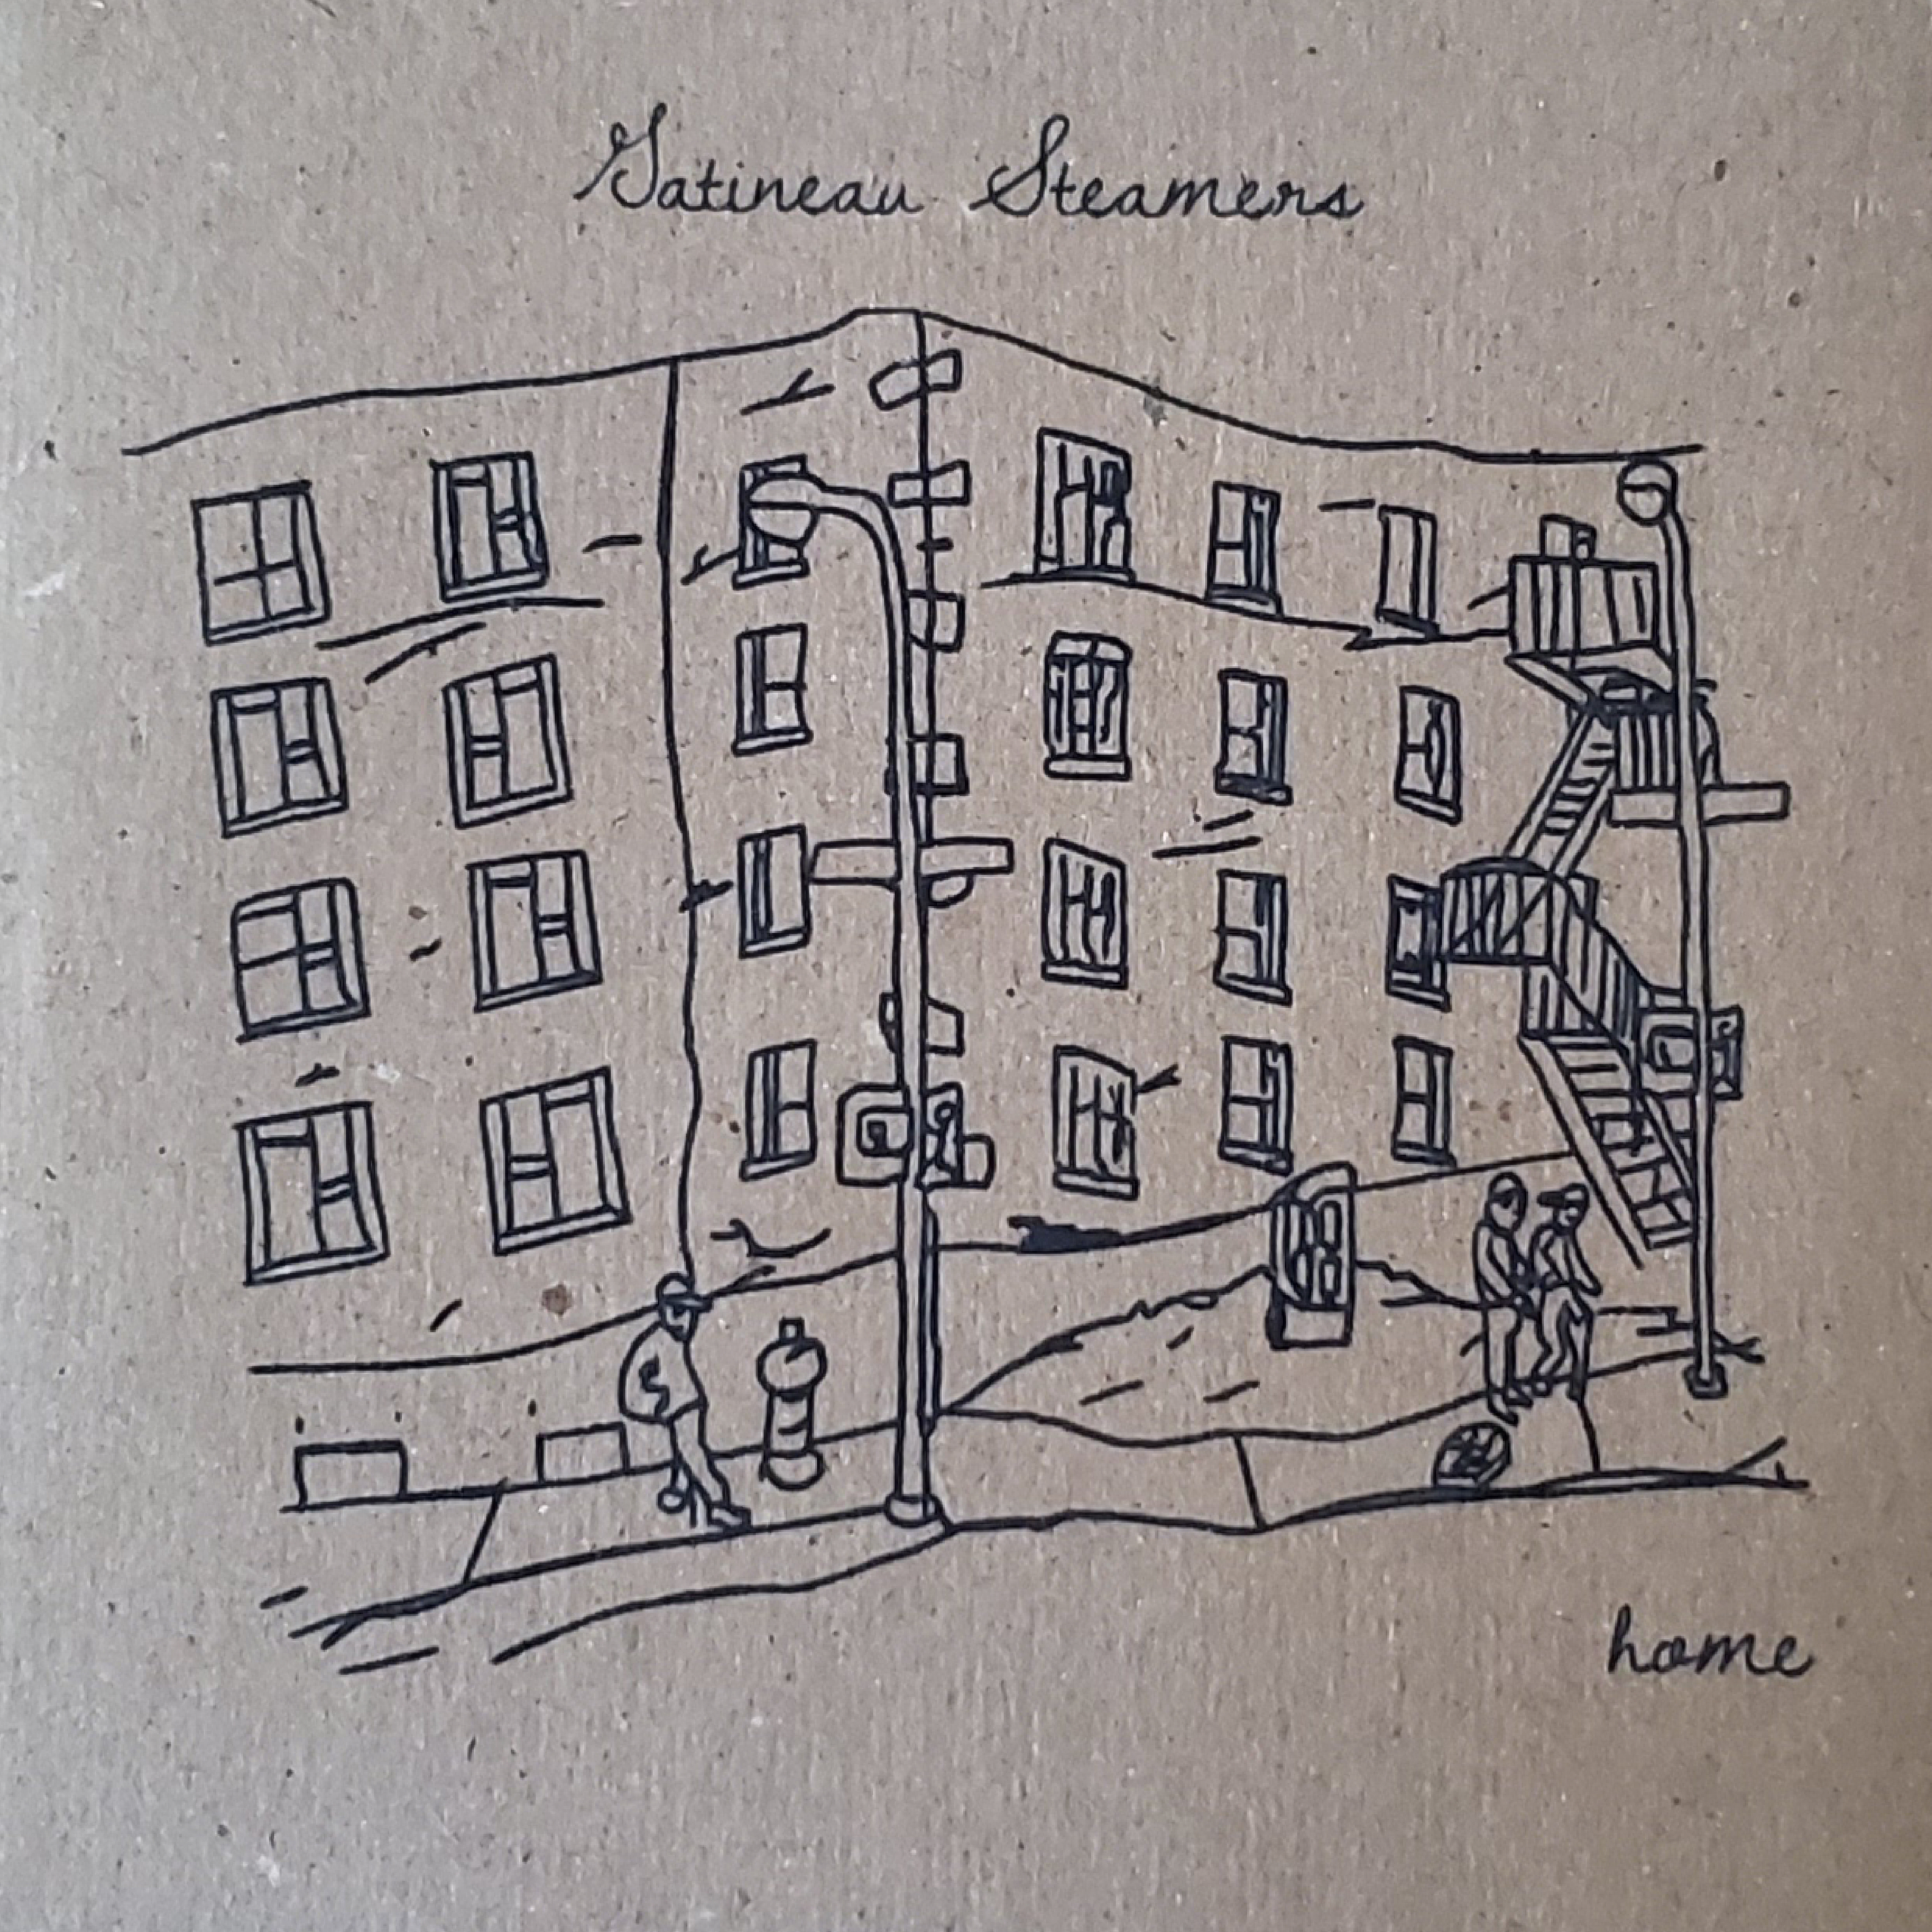 Gatineau Steamers
home